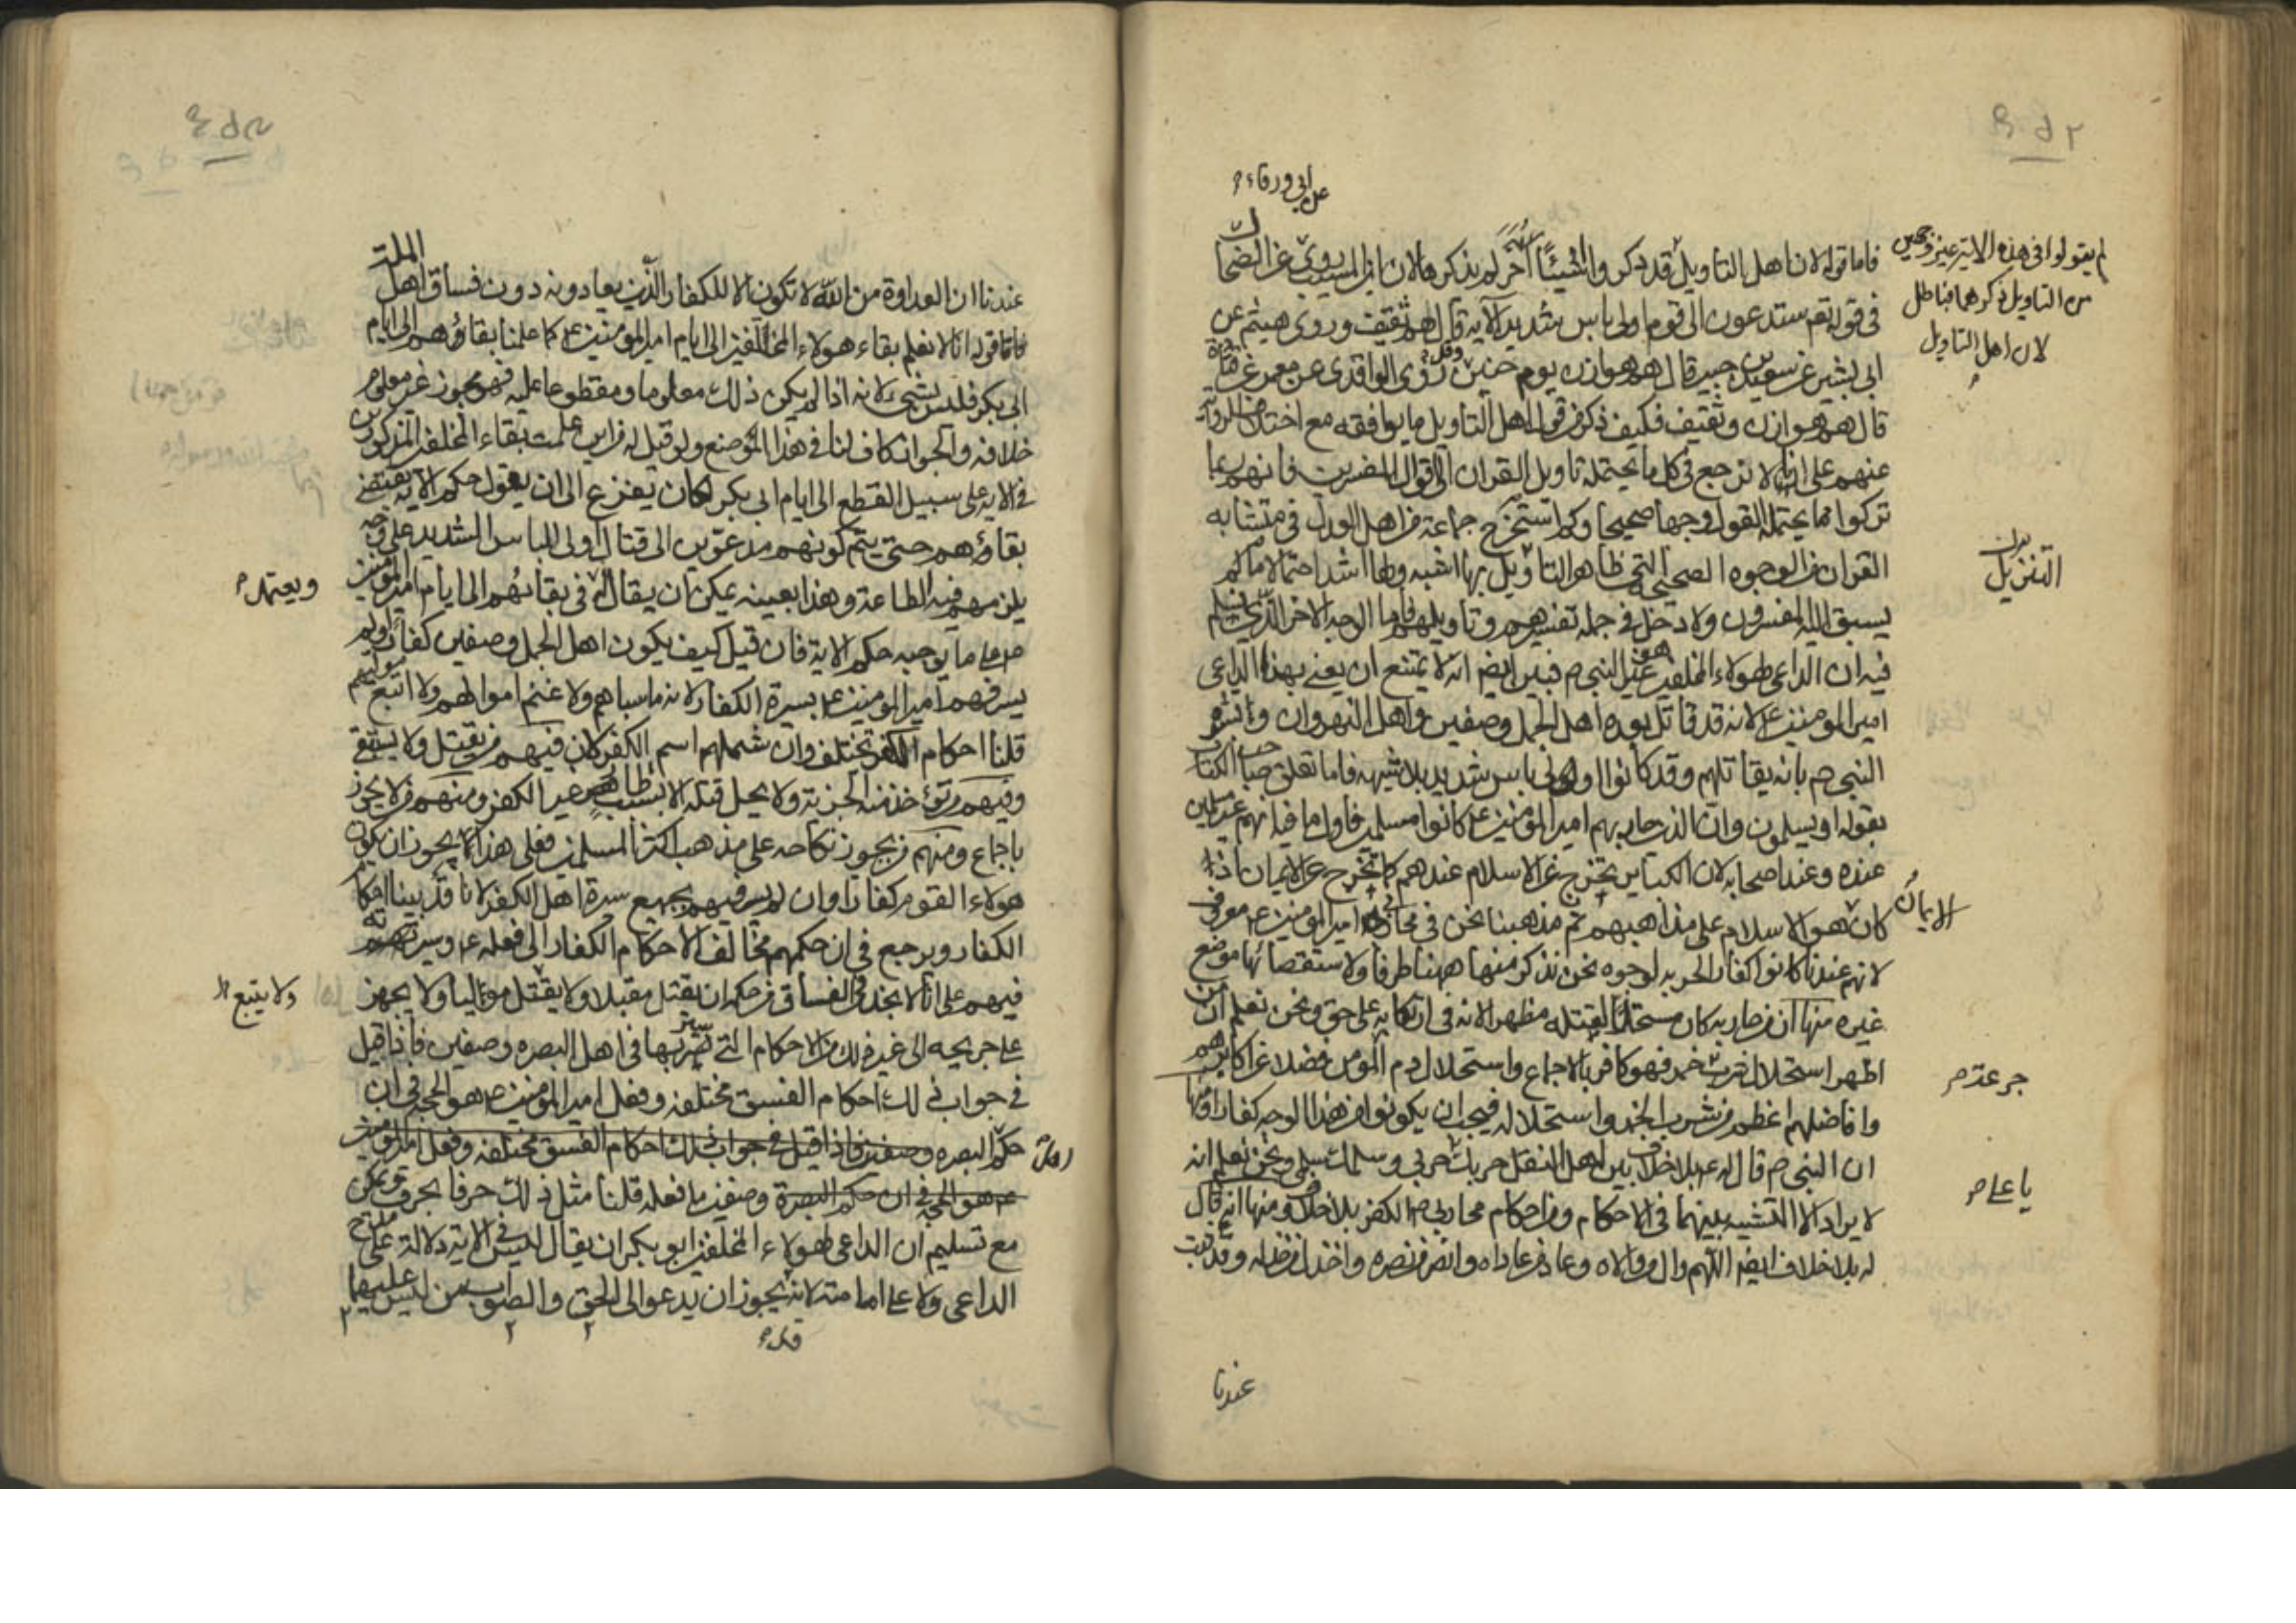 عن ابي ورقاء
فاما قوله لان اهل التأويل قد ذكروا شيئًا آخر لم يذكره لان ابن المسيب روى عن الضحاك
في قوله تع ستدعون الى قوم اولى باس شديد الآيه قال هم ثقيف وروى هيثم عن
ابي بشير عن سعيد بن جبير قال هم هوازن يوم حنين وروى الواقدى عن معمر عن قتادة
قال هم هوازن وثقيف فكيف ذكر من قول اهل التأويل ما يوافقه مع اختلاف الرواية
عنهم على انا لا نرجع في كل ما يحتمله تاويل القران الى اقوال المفسرين فانهم ربما
تركوا مما يحتمله القول وجها صحيحا وكم استخرج جماعة من اهل العدل في متشابه
القران من الوجوه الصحيحة التي ظاهر التأويل بها اشبه ولها اشد احتمالا ما لم
يسبق اليه المفسرون ولا دخل في جملة تفسيرهم وتأويلهم فاما الوجه الاخر الذي نسلم
فيه ان الداعي لهولاء المخلفين غير النبي ص فبين ايضا انه لا يمتنع ان يعنى بهذا الداعي
امير المومنين ع لانه قد قاتل بعده اهل الجمل وصفين واهل النهروان وبشره
النبي ص بانه يقاتلهم وقد كانوا اولى باس شديد بلا شبهه فاما تعلق صاحب الكتاب
بقوله او يسلمون وان الذين حاربهم امير المؤمنين ع كانوا مسلمين فاول ما فيه انهم غير مسلمين
عنده وعند اصحابه لان الكبائر تخرج عن الاسلام عندهم كما تخرج عن الايمان اذا
كان هو الاسلام على مذاهبهم ثم مذهبنا نحن في محاربي امير المومنين ع معروف
لانهم عندنا كانوا كفارا لحربه لوجوه نحن نذكر منها ههنا طرفا ولاستقصائها موضع
غيره منها ان من حاربه كان مستحلا لقتله مظهرا لانه في ارتكابه على حق ونحن نعلم ان من
اظهر استحلال شرب خمر فهو كافر بالاجماع واستحلال دم المومن فضلا عن اكابرهم
وافاضلهم اعظم من شرب الخمر واستحلاله فيجب ان يكونوا من هذا الوجه كفارا ومنها
ان النبي ص قال له ع بلا خلاف بين اهل النقل حربك حربي وسلمك سلمي ونحن نعلم انه
لا يراد الا التشبيه بينهما في الاحكام ومن احكام محاربي ص الكفر بلا خلاف ومنها انه قال
له بلا خلاف ايضا اللهم وال من والاه وعاد من عاداه وانصر من نصره واخذل من خذله وقد ثبت
عندنا
لم يقولوا في هذه الاية غير وجهين
من التاويل ذكرهما فباطل
لان اهل التاويل
التنزيل
الايمان
جرعة
يا علي
عندنا ان العداوة من الله لا تكون الا للكفار الذين يعادونه دون فساق اهل الملة
فاما قوله انا لا نعلم بقاء هولاء المخالفين الى ايام امير المومنين ع كما علمنا بقاؤهم الى ايام
ابي بكر فليس بشيء لانه اذا لم يكن ذلك معلوما ومقطوعا عليه فهو مجوز غير معلوم
خلافه والجواز كاف لنا في هذا الموضع ولو قيل له من اين علمت بقاء المخلفين المذكورين
في الايه على سبيل القطع الى ايام ابي بكر لكان يفزع الى ان يقول حكم الاية يقتضي
بقاءهم حتى يتم كونهم مدعوين الى قتال اولى الباس الشديد على وجه
يلزمهم فيه الطاعة وهذا بعينه يمكن ان يقال له في بقائهم الى ايام امير المومنين
ع على ما يوجبه حكم الاية فان قيل كيف يكون اهل الجمل وصفين كفارا ولم
يسر فيهم امير المومنين ع بسيرة الكفار لانه ما سباهم ولا غنم اموالهم ولا اتبع موليهم
قلنا احكام الكفر تختلف وان شملهم اسم الكفر لان فيهم من يقتل ولا يستبقى
وفيهم من تؤخذ منه الجزية ولا يحل قتله الا بسبب طار غير الكفر ومنهم من لا يجوز
باجماع ومنهم من يجوز نكاحه على مذهب اكثر المسلمين فعلى هذا يجوز ان يكون
هولاء القوم كفارا وان لم يسر فيهم بجميع سيرة اهل الكفر لانا قد بينا احكام
الكفار ويرجع في ان حكمهم مخالف لاحكام الكفار الى فعله ع وسيرته
فيهم على انا لا نجد في الفساق من حكمه ان يقتل مقبلا ولا يقتل موليا ولا يجهز
على جريحه الى غير ذلك من الاحكام التي سيرتها في اهل البصره وصفين فاذا قيل
في جواب ذلك احكام الفسق مختلفه وفعل امير المومنين ع هو الحجه في ان
حكم البصره وصفين فاذا قيل في جواب ذلك احكام الفسق مختلفه وفعل امير المومنين
ع هو الحجه في ان حكم البصرة وصفين ما فعله قلنا مثل ذلك حرفا بحرف ويمكن
مع تسليم ان الداعي لهولاء المخلفين ابو بكر ان يقال ليس في الاية دلالة على مدح
الداعي ولا على امامته لانه يجوز ان يدعو الى الحق والصواب من ليس عليهما
ويعتمده
ولا يتبع
اهل
قد